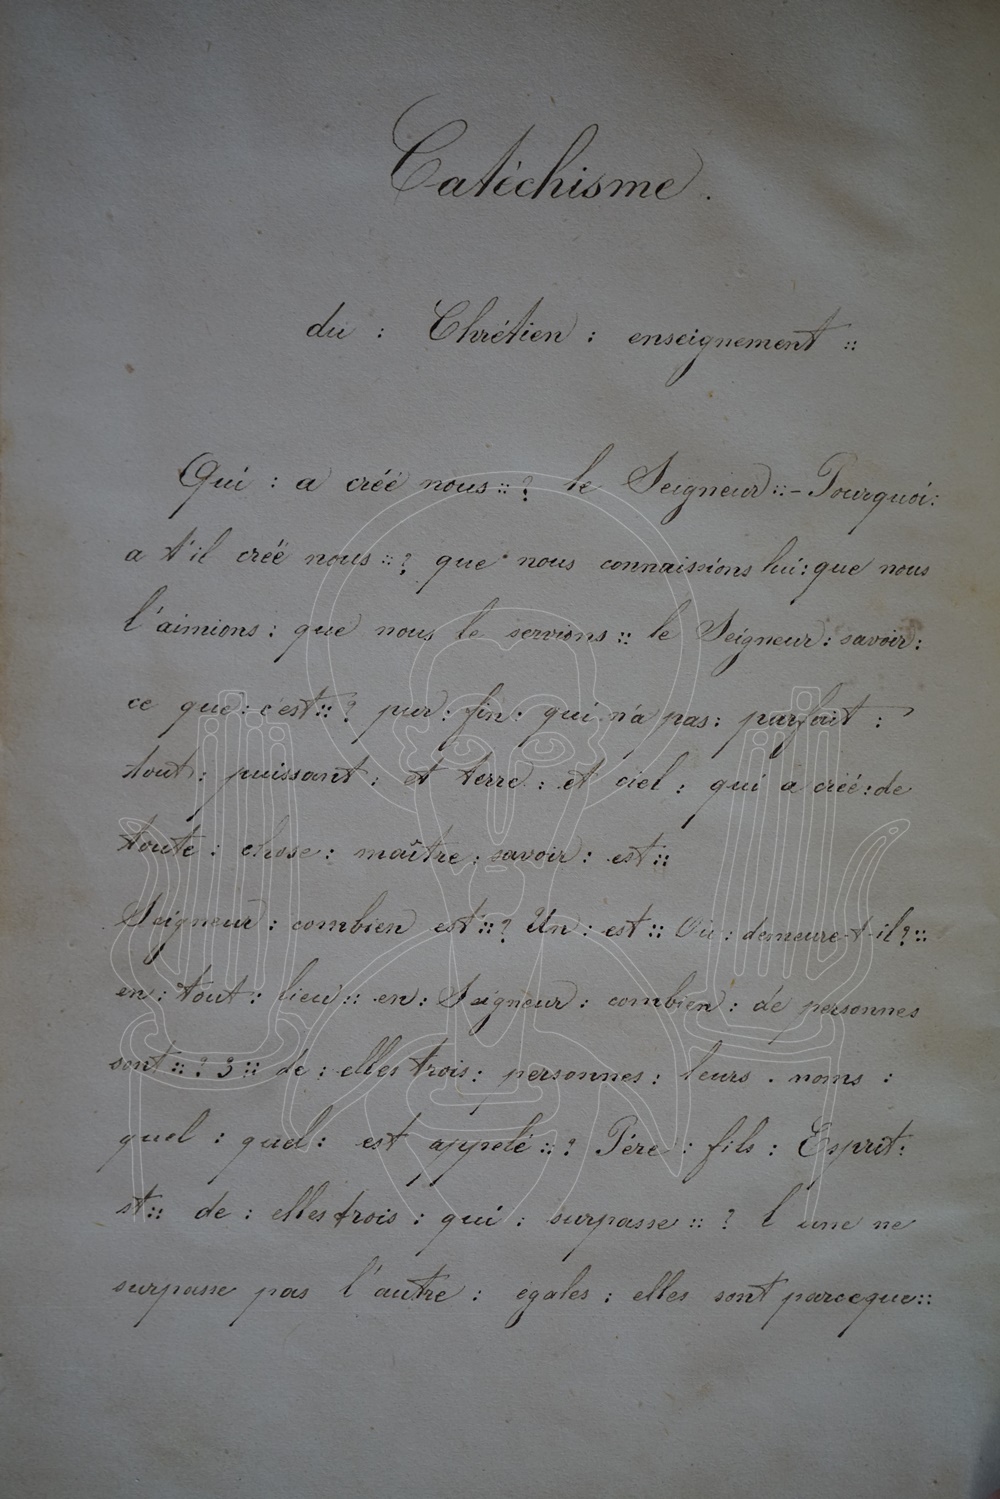 Catéchisme.
du : Chrétien : enseignement ::
Qui : a créé nous :: ? le Seigneur :: - Pourquoi :
a t'il créé nous :: ? que nous connaissions lui : que nous
l'aimions : que nous le servions :: le Seigneur : savoir :
ce que : c'est :: ? pur : fin : qui n'a pas : parfait :
tout : puissant : et terre : et ciel : qui a créé : de
toute : chose : maître : savoir : est ::
Seigneur : combien est :: ? Un : est :: Où : demeure-t-il ? ::
en : tout : lieu :: en : Seigneur : combien : de personnes
sont :: ? 3 :: de : elles trois : personnes : leurs . noms :
quel : quel : est appelé :: ? Père : fils : Esprit :
st :: de : elles trois : qui : surpasse :: ? l'une ne
surpasse pas l'autre : égales : elles sont parceque ::